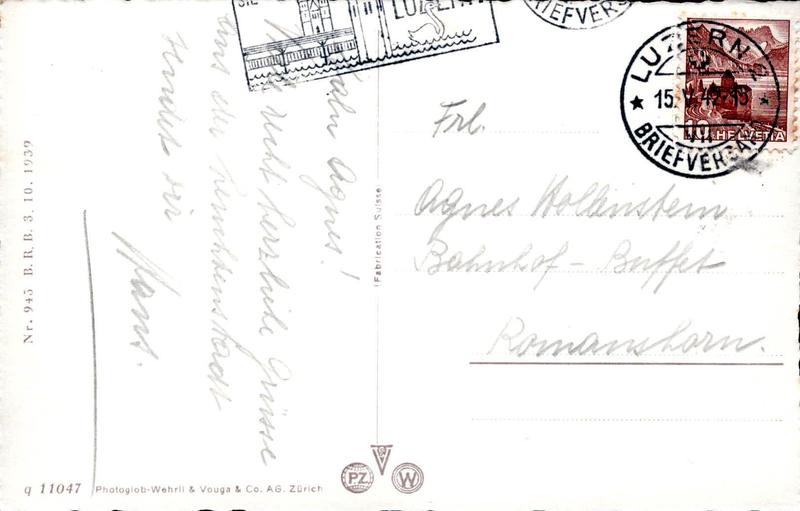 LUZERN
LUZERN 2
15.V.42-13
BRIEFVERSAND
BRIEFVERS
HELVETIA
10
Frl.
Agnes Hollenstein
Bahnhof-Buffet
Romanshorn.
Agnes!
recht herzliche Grüsse
aus der Leuchtenstadt
sendet dir
Hans.
Fabrication Suisse
Nr. 945 B. R. B. 3. 10. 1939
q 11047 Photoglob-Wehrli & Vouga & Co. AG. Zürich
PZ
W